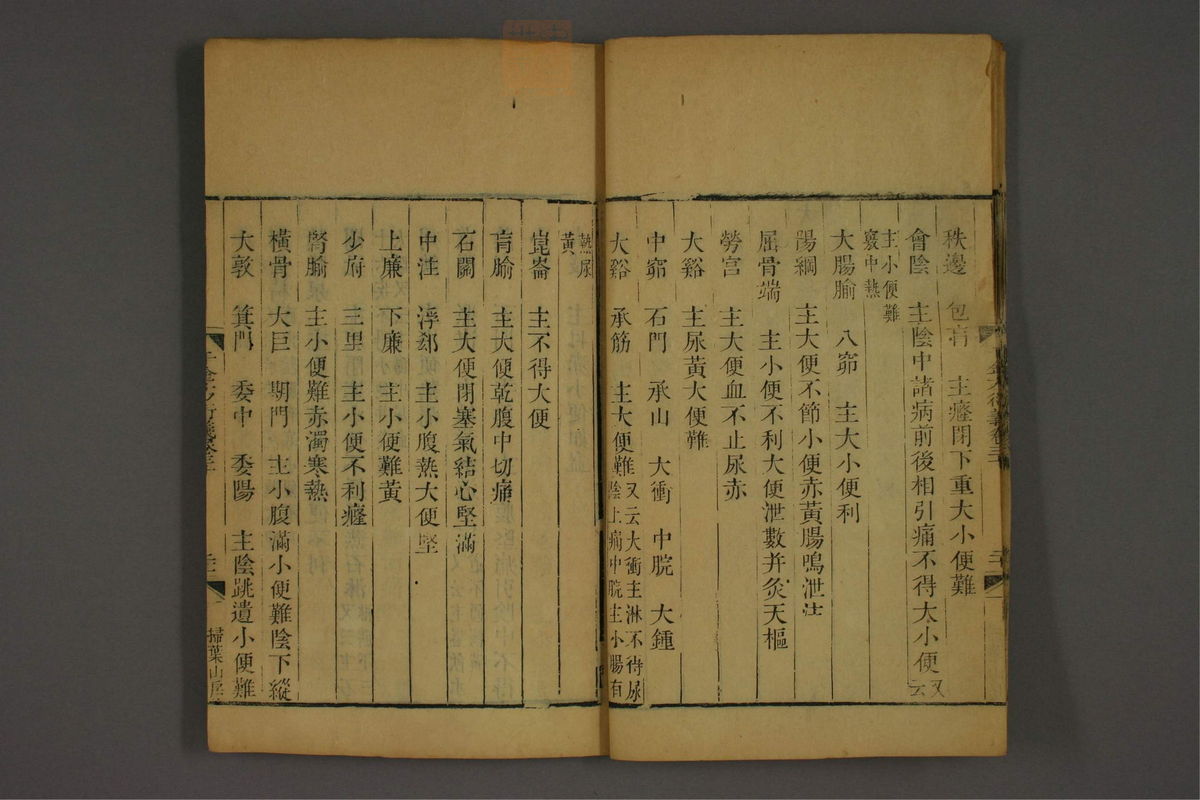 秩邊 包肓 主癃閉下重大小便難
會陰 主陰中諸病前後相引痛不得大小便 又云
主小便難
竅中熱
大腸腧 八窌 主大小便利
陽綱 主大便不節小便赤黃腸鳴泄注
屈骨端 主小便不利大便泄數并灸天樞
勞宮 主大便血不止尿赤
大谿 主尿黃大便難
中窌 石門 承山 大衝 中脘 大鍾
大谿 承筋 主大便難 又云大衝主淋不得尿
陰上痛中脘主小腸有
熱尿
黃
崑崙 主不得大便
肓腧 主大便乾腹中切痛
石關 主大便閉塞氣結心堅滿
中注 浮郄 主小腹熱大便堅
上廉 下廉 主小便難黃
少府 三里 主小便不利癃
腎腧 主小便難赤濁寒熱
橫骨 大巨 期門 主小腹滿小便難陰下縱
大敦 箕門 委中 委陽 主陰跳遺小便難
掃葉山房